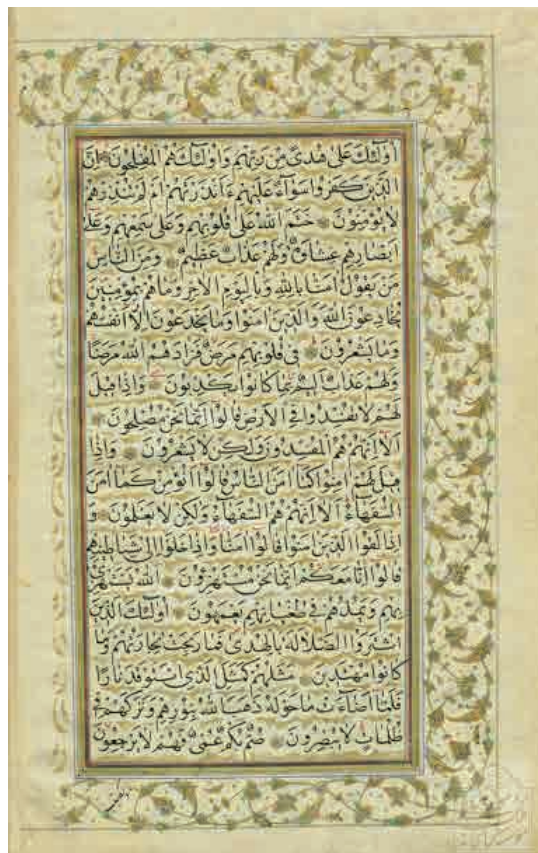 أُولَٰئِكَ عَلَىٰ هُدًى مِنْ رَبِّهِمْ وَأُولَٰئِكَ هُمُ الْمُفْلِحُونَ إِنَّ
الَّذِينَ كَفَرُوا سَوَاءٌ عَلَيْهِمْ ءَأَنْذَرْتَهُمْ أَمْ لَمْ تُنْذِرْهُمْ
لَا يُؤْمِنُونَ خَتَمَ اللَّهُ عَلَىٰ قُلُوبِهِمْ وَعَلَىٰ سَمْعِهِمْ وَعَلَىٰ
أَبْصَارِهِمْ غِشَاوَةٌ وَلَهُمْ عَذَابٌ عَظِيمٌ وَمِنَ النَّاسِ
مَنْ يَقُولُ آمَنَّا بِاللَّهِ وَبِالْيَوْمِ الْآخِرِ وَمَا هُمْ بِمُؤْمِنِينَ
يُخَادِعُونَ اللَّهَ وَالَّذِينَ آمَنُوا وَمَا يَخْدَعُونَ إِلَّا أَنْفُسَهُمْ
وَمَا يَشْعُرُونَ فِي قُلُوبِهِمْ مَرَضٌ فَزَادَهُمُ اللَّهُ مَرَضًا
وَلَهُمْ عَذَابٌ أَلِيمٌ بِمَا كَانُوا يَكْذِبُونَ وَإِذَا قِيلَ
لَهُمْ لَا تُفْسِدُوا فِي الْأَرْضِ قَالُوا إِنَّمَا نَحْنُ مُصْلِحُونَ
أَلَا إِنَّهُمْ هُمُ الْمُفْسِدُونَ وَلَٰكِنْ لَا يَشْعُرُونَ وَإِذَا
قِيلَ لَهُمْ آمِنُوا كَمَا آمَنَ النَّاسُ قَالُوا أَنُؤْمِنُ كَمَا آمَنَ
السُّفَهَاءُ أَلَا إِنَّهُمْ هُمُ السُّفَهَاءُ وَلَٰكِنْ لَا يَعْلَمُونَ وَ
إِذَا لَقُوا الَّذِينَ آمَنُوا قَالُوا آمَنَّا وَإِذَا خَلَوْا إِلَىٰ شَيَاطِينِهِمْ
قَالُوا إِنَّا مَعَكُمْ إِنَّمَا نَحْنُ مُسْتَهْزِءُونَ اللَّهُ يَسْتَهْزِئُ
بِهِمْ وَيَمُدُّهُمْ فِي طُغْيَانِهِمْ يَعْمَهُونَ أُولَٰئِكَ الَّذِينَ
اشْتَرَوُا الضَّلَالَةَ بِالْهُدَىٰ فَمَا رَبِحَتْ تِجَارَتُهُمْ وَمَا
كَانُوا مُهْتَدِينَ مَثَلُهُمْ كَمَثَلِ الَّذِي اسْتَوْقَدَ نَارًا
فَلَمَّا أَضَاءَتْ مَا حَوْلَهُ ذَهَبَ اللَّهُ بِنُورِهِمْ وَتَرَكَهُمْ فِي
ظُلُمَاتٍ لَا يُبْصِرُونَ صُمٌّ بُكْمٌ عُمْيٌ فَهُمْ لَا يَرْجِعُونَ